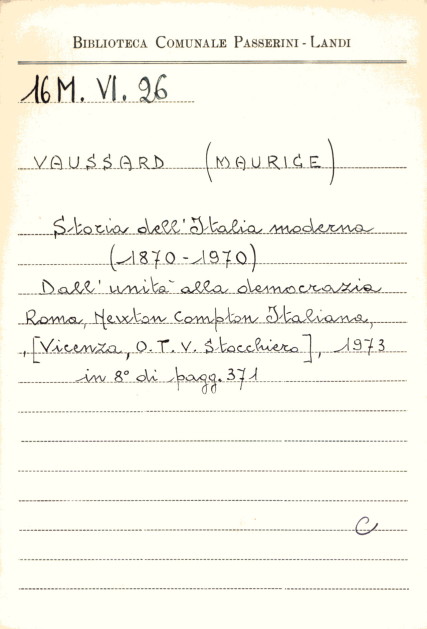 BIBLIOTECA COMUNALE PASSERINI - LANDI
16 M. VI. 26
VAUSSARD (MAURICE)
Storia dell'Italia moderna
(1870-1970)
Dall'unità alla democrazia
Roma, Newton Compton Italiana,
,[Vicenza, O. T. V. Stocchiero], 1973
in 8° di pagg. 371
C